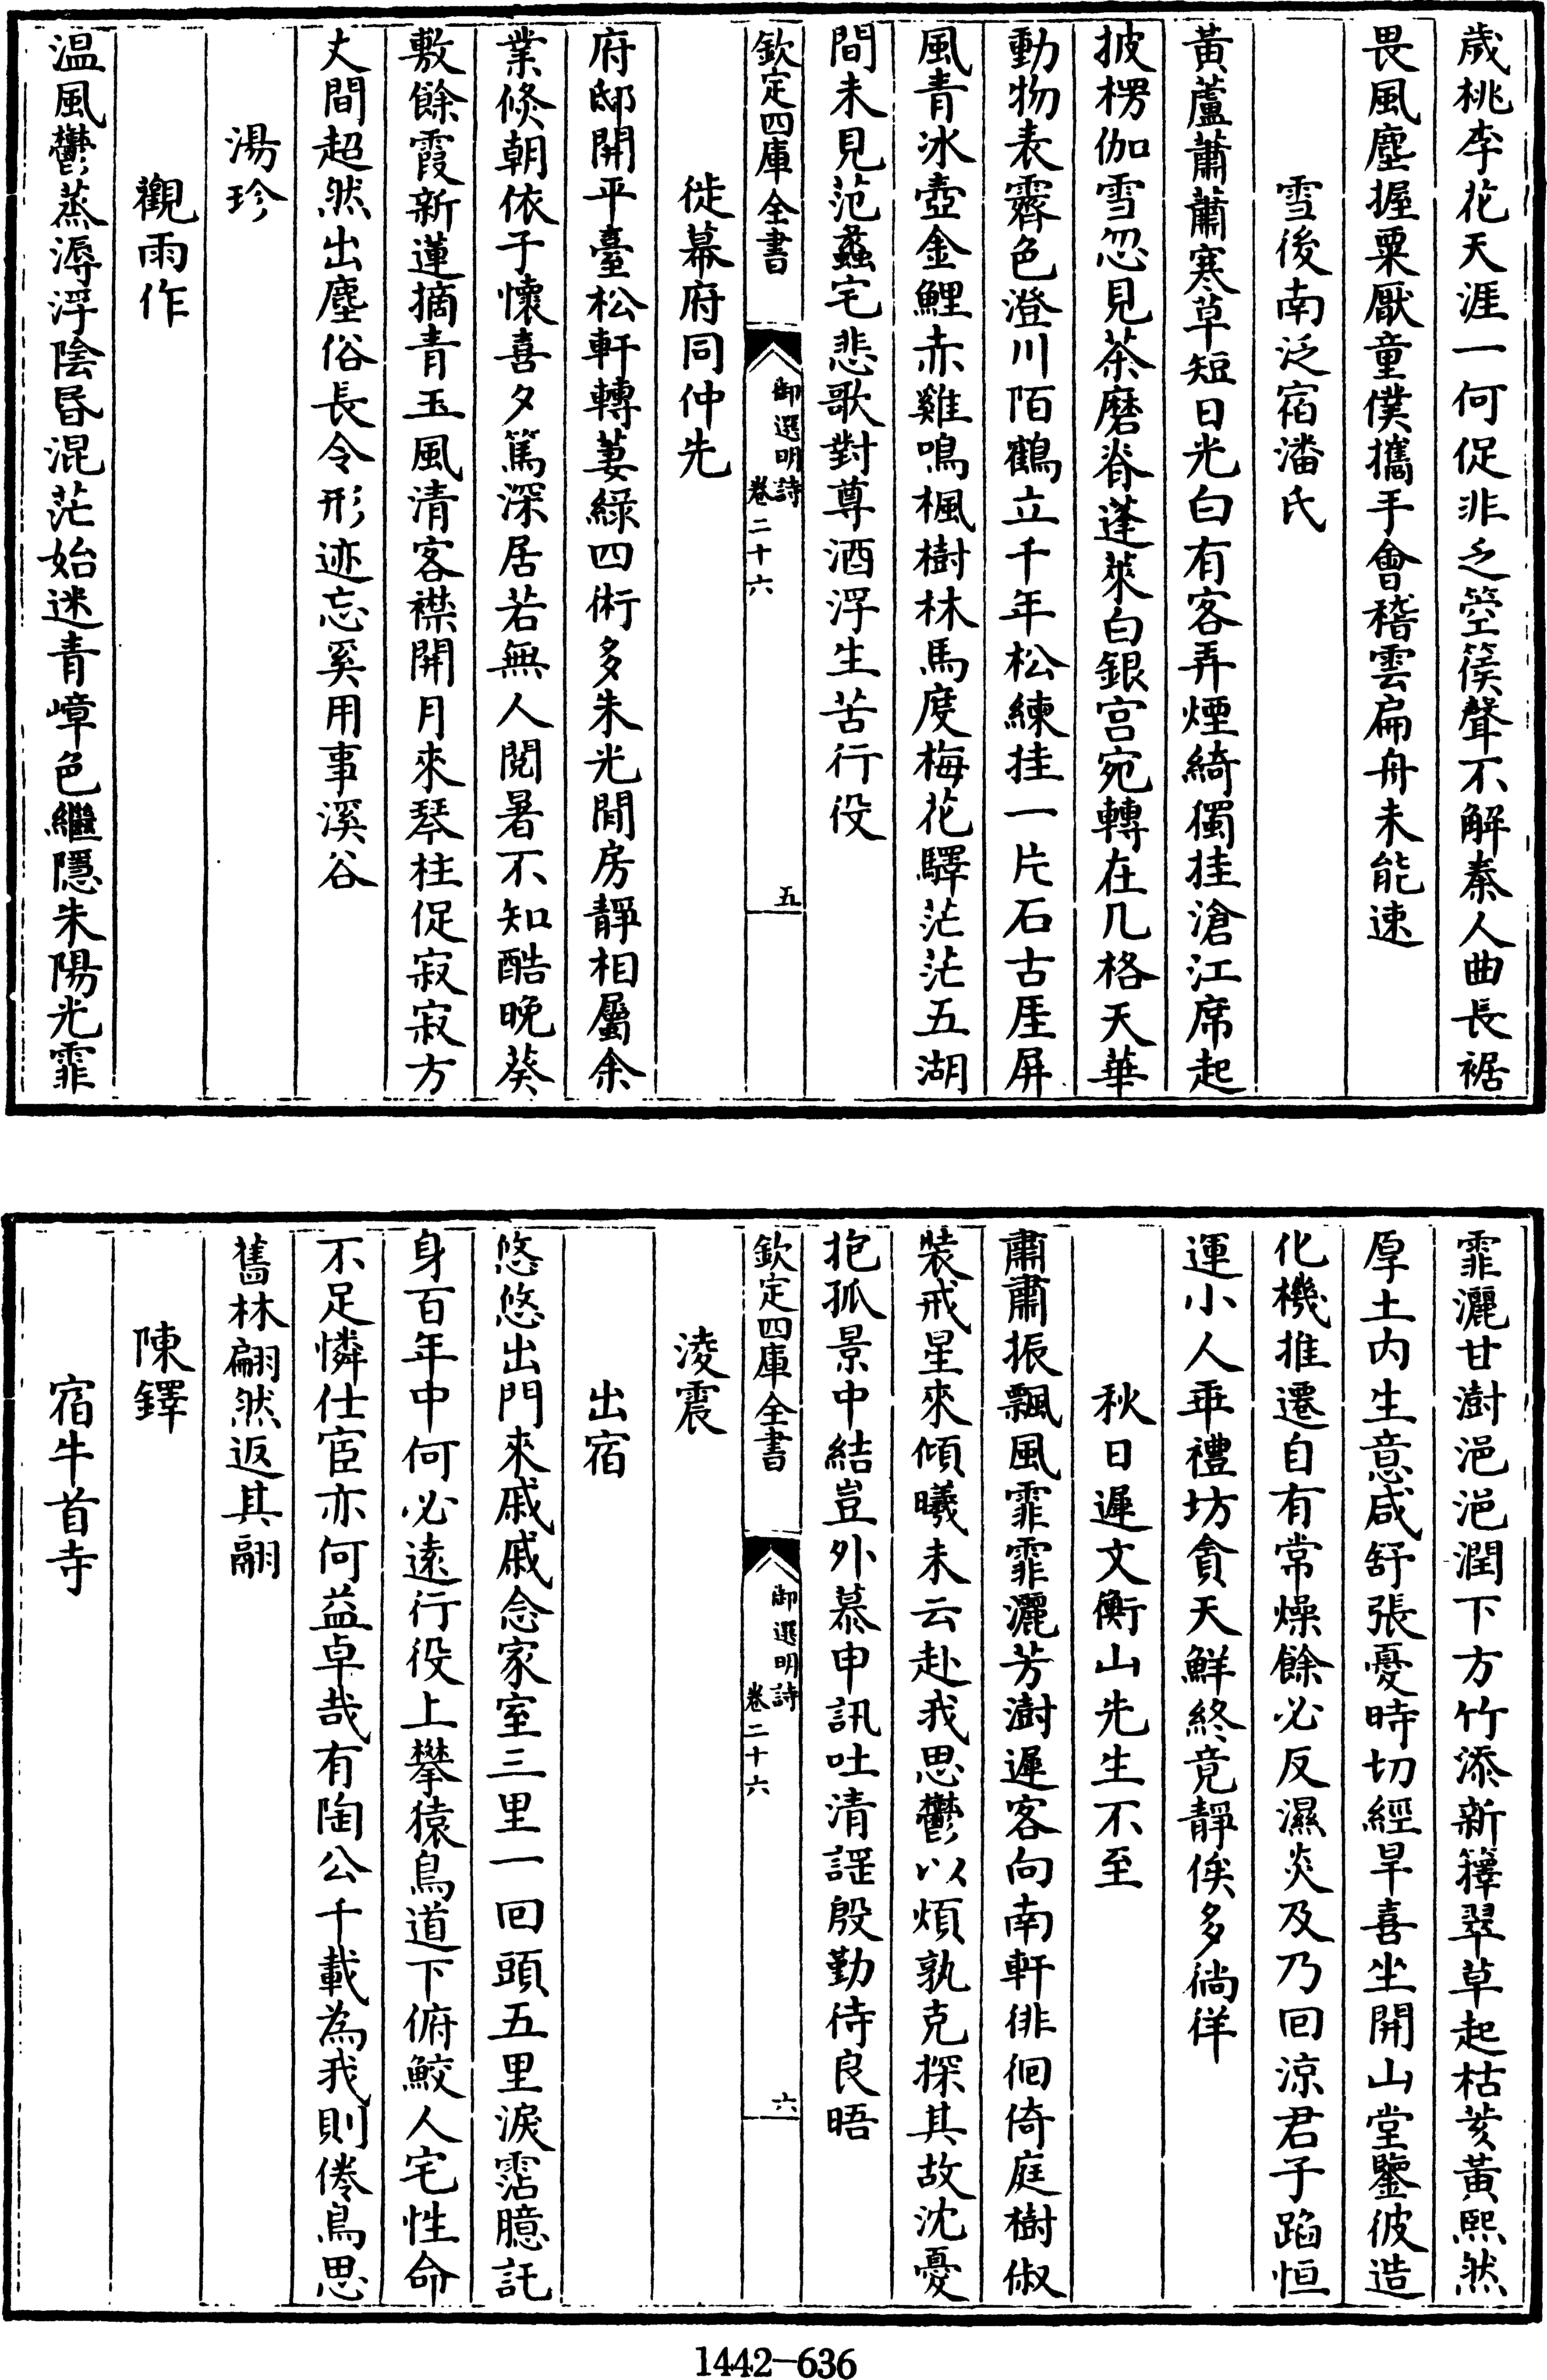 歲桃李花天涯一何促非乏箜篌聲不解秦人曲長裾
畏風塵握粟厭童僕攜手會稽雲扁舟未能速
雪後南泛宿潘氏
黃蘆蕭蕭寒草短日光白有客弄煙綺獨挂滄江席起
披楞伽雪忽見茶磨脊蓬萊白銀宮宛轉在几格天華
動物表霽色澄川陌鶴立千年松練挂一片石古厓屏
風青冰壺金鯉赤雞鳴楓樹林馬度梅花驛茫茫五湖
間未見范蠡宅悲歌對尊酒浮生苦行役
欽定四庫全書
御選明詩
卷二十六
五
徙幕府同仲先
府邸開平臺松軒轉萋綠四術多朱光閒房靜相屬余
業倐朝依子懷喜夕篤深居若無人閱暑不知酷晚葵
敷餘霞新蓮摘青玉風清客襟開月來琴柱促寂寂方
丈間超然出塵俗長令形迹忘奚用事溪谷
湯珍
觀雨作
温風鬱蒸溽浮陰昏混茫始迷青嶂色繼隱朱陽光霏
霏灑甘澍浥浥潤下方竹添新籜翠草起枯荄黃熙然
厚土内生意咸舒張憂時切經旱喜坐開山堂鑒彼造
化機推遷自有常燥餘必反濕炎及乃回涼君子蹈恒
運小人乖禮坊貪天鮮終竟靜俟多徜徉
秋日遲文衡山先生不至
肅肅振飄風霏霏灑芳澍遲客向南軒徘徊倚庭樹俶
裝戒星來傾曦未云赴我思鬱以煩孰克探其故沈憂
抱孤景中結豈外慕申訊吐清謳殷勤侍良晤
欽定四庫全書
御選明詩
卷二十六
六
淩震
出宿
悠悠出門來戚戚念家室三里一回頭五里淚霑臆託
身百年中何必遠行役上攀猿鳥道下俯鮫人宅性命
不足憐仕宦亦何益卓哉有陶公千載為我則倦鳥思
舊林翩然返其翮
陳鐸
宿牛首寺
1442-636